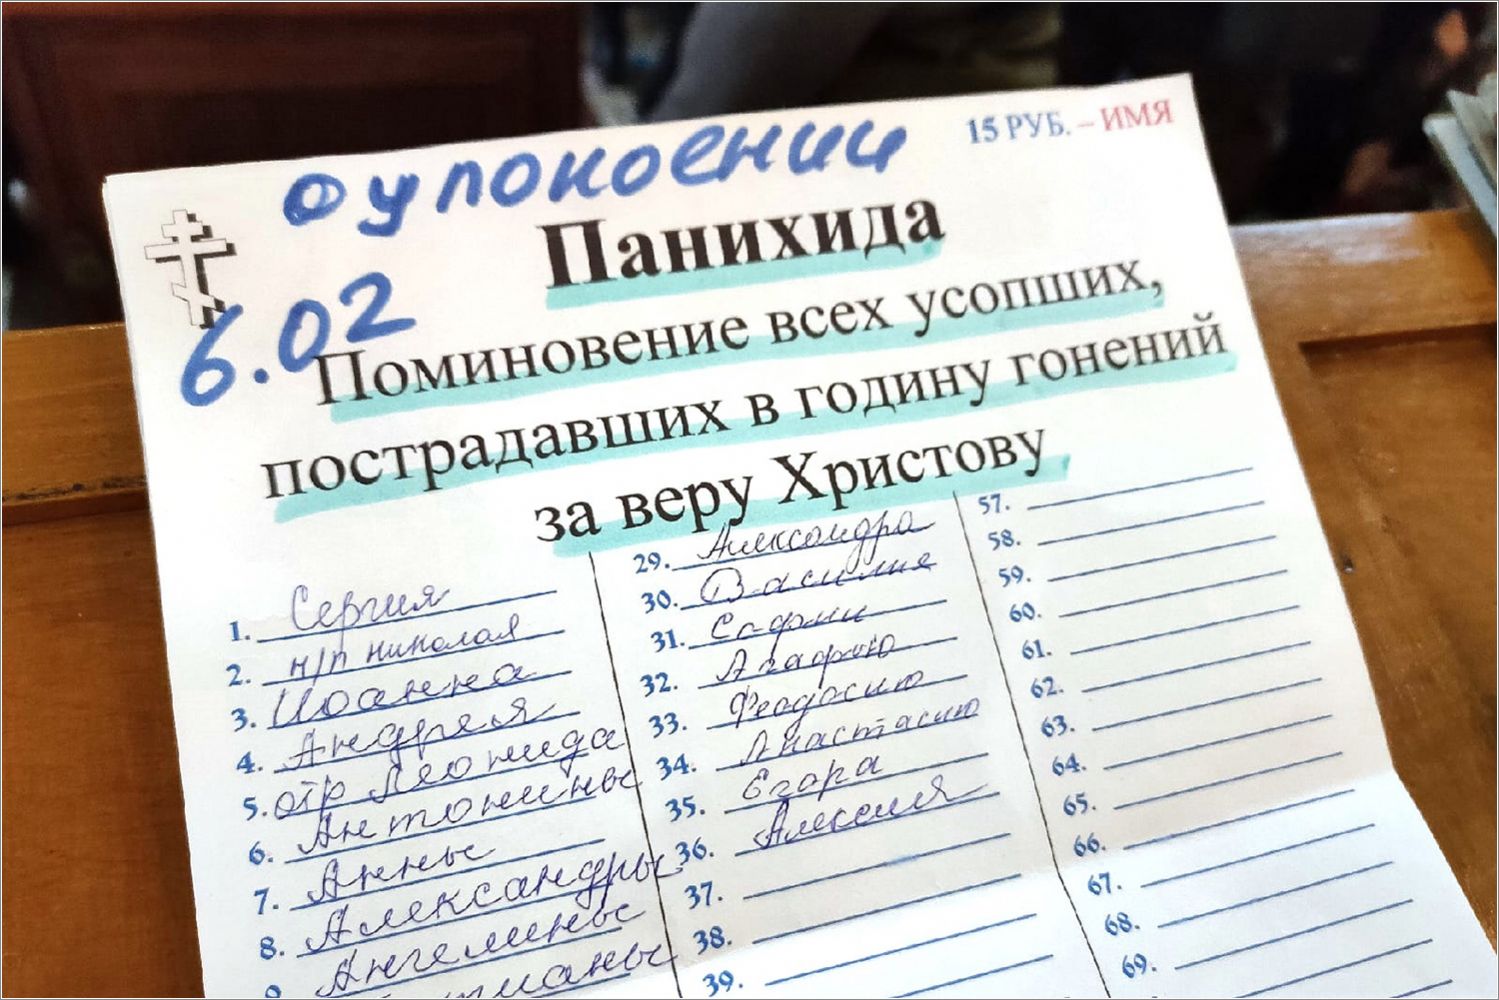 15 РУБ. – ИМЯ
о упокоении
Панихида
6.02
Поминовение всех усопших,
пострадавших в годину гонений
за веру Христову
1. Сергия
2. н/п николая
3. Иоанна
4. Андрея
5. отр Леонида
6. Антонины
7. Анны
8. Александры
9 Ангелины
29. Александра
30. Василия
31. Софии
32. Агафию
33. Феодосию
34. Анастасию
35. Егора
36. Алексея
37.
38.
39.
57.
58.
59.
60.
61.
62.
63.
64.
65.
66.
67.
68.
69.